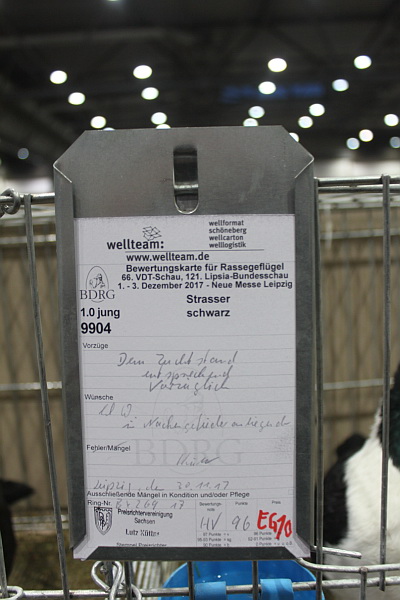 wellteam:
wellformat
schöneberg
wellcarton
welllogistik
www.wellteam.de
Bewertungskarte für Rassegeflügel
66. VDT-Schau, 121. Lipsia-Bundesschau
1. - 3. Dezember 2017 - Neue Messe Leipzig
BDRG
Strasser
1.0 jung
schwarz
9904
Vorzüge
Dem Zuchtstand
entsprechend
Vorzüglich
Wünsche
in Nackengefieder anliegender
Fehler/Mängel
Leipzig, den 30.11.17
Ausschließende Mängel in Kondition und/oder Pflege
Ring-Nr.
Preisrichtervereinigung
Sachsen
Lutz
Bewertungsnote
Punkte
Preis
HV 96 E610